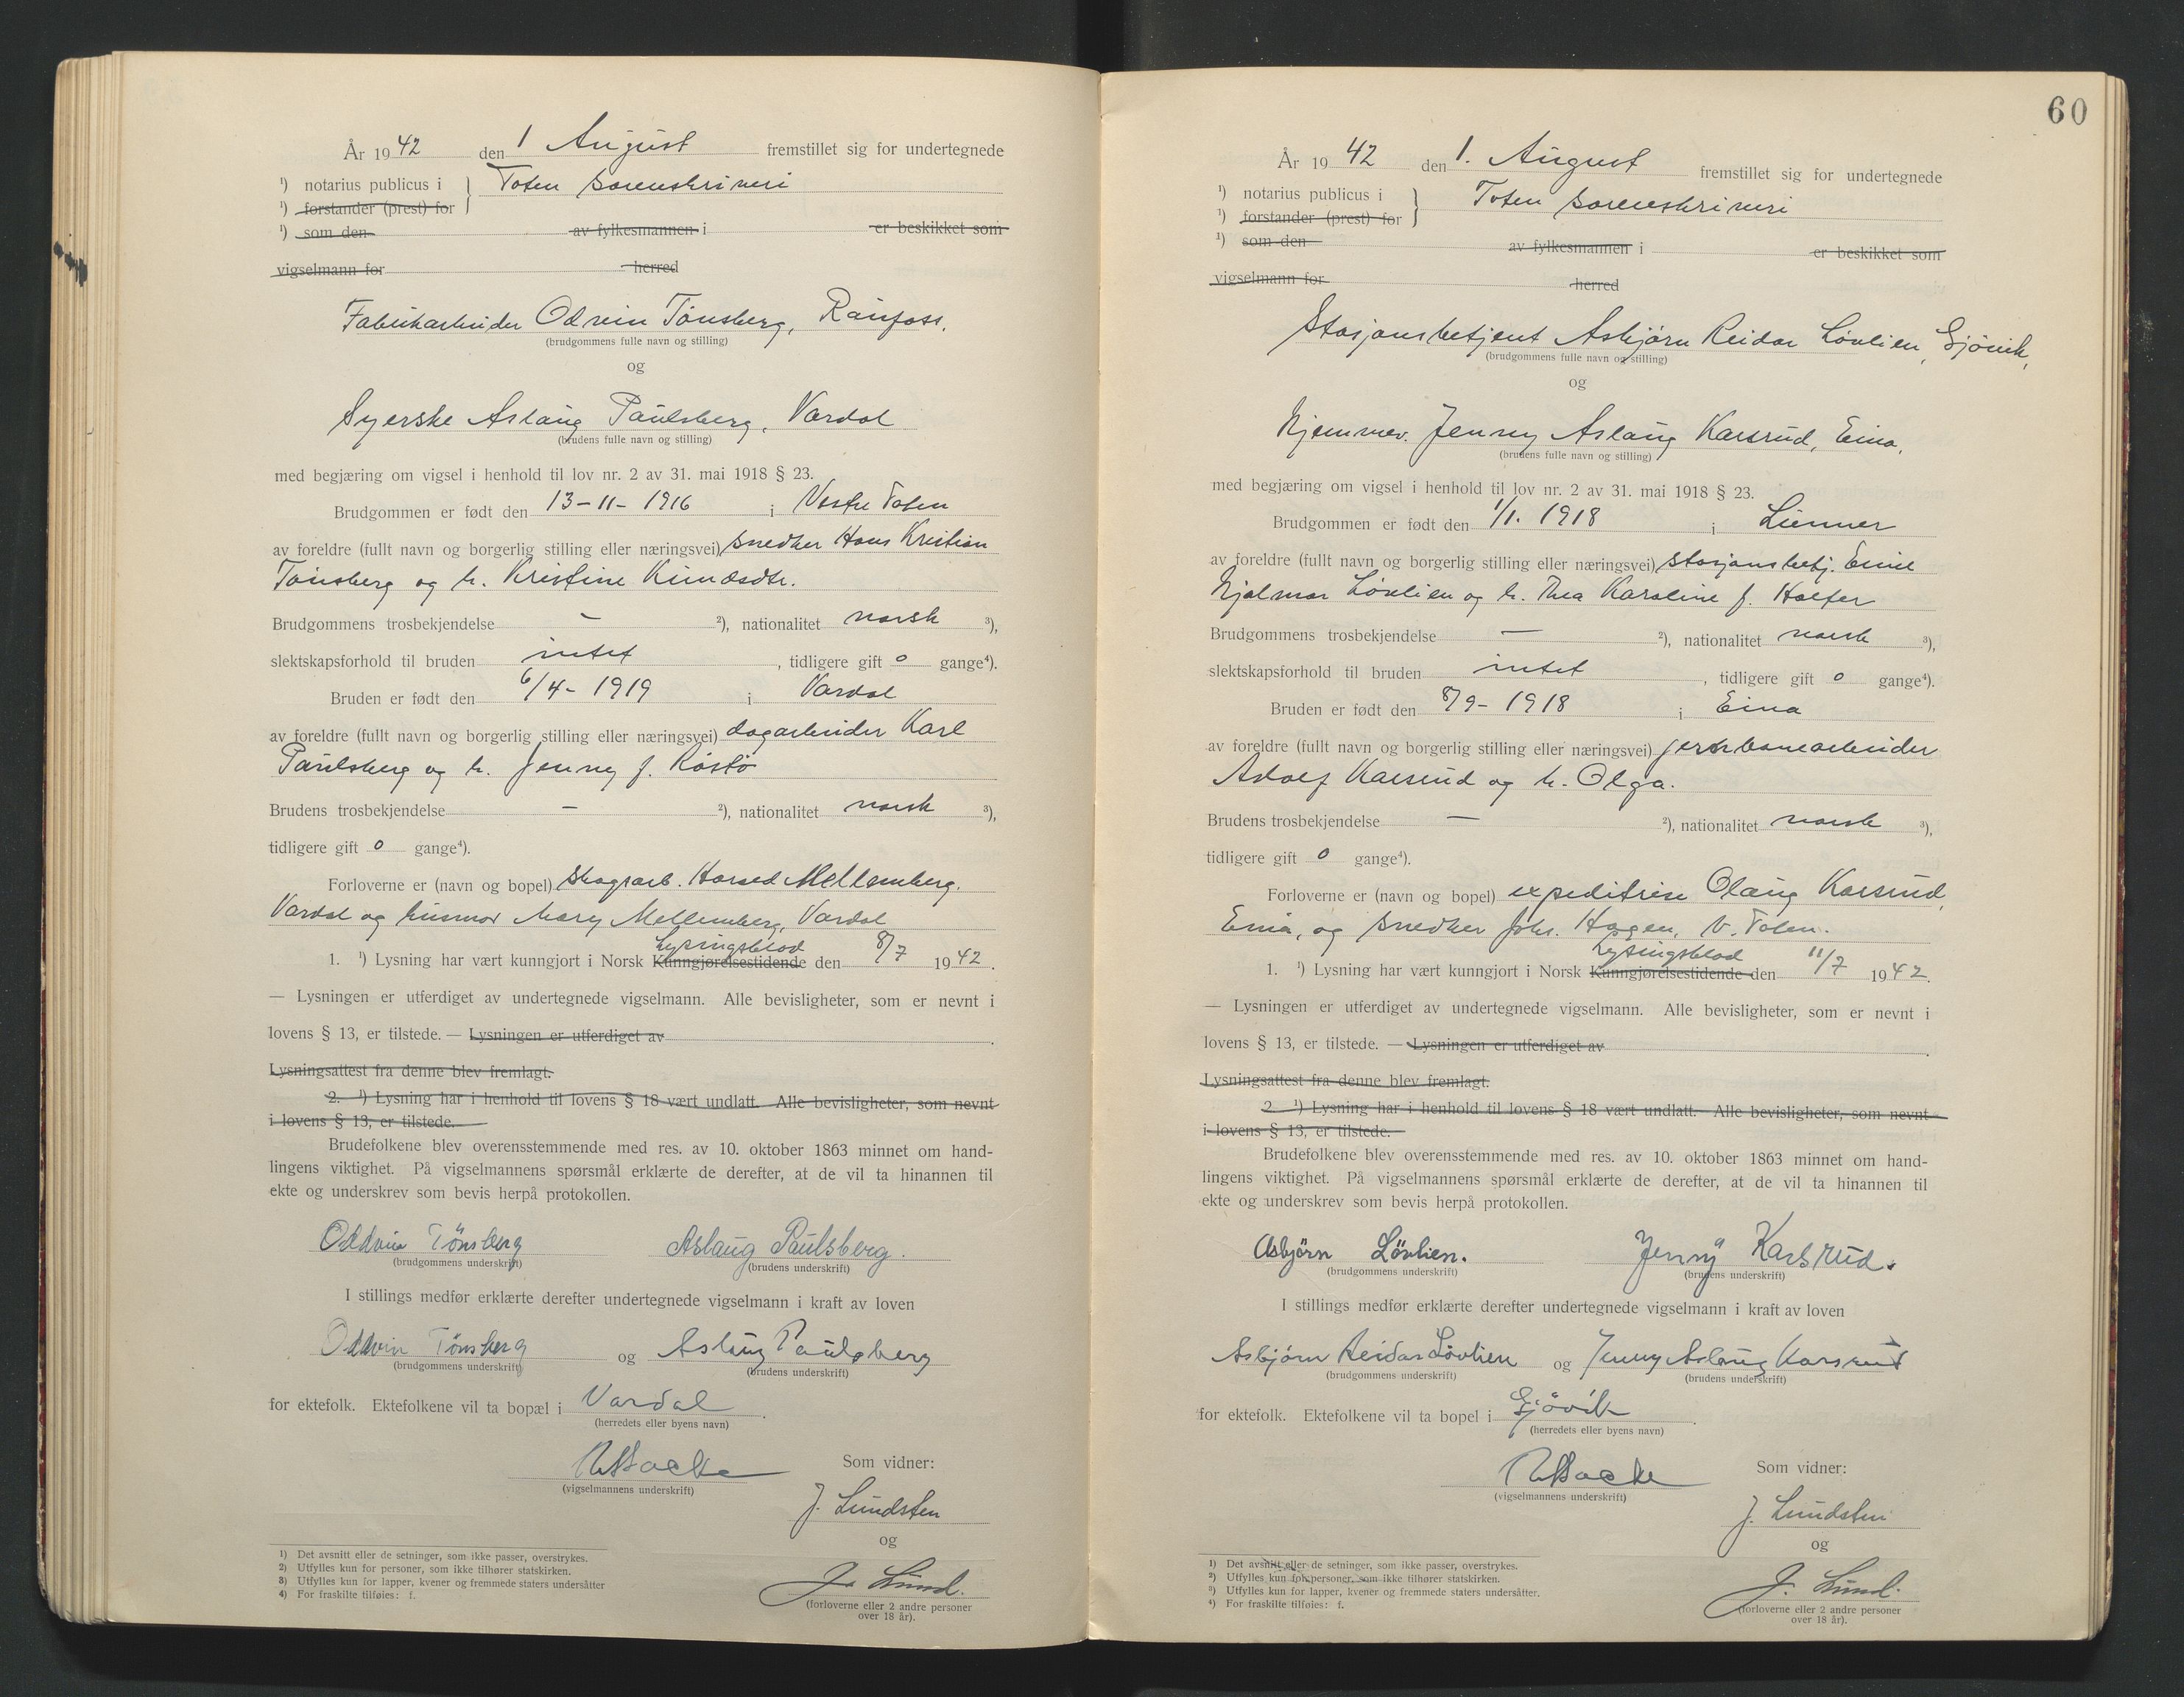 År 1942 den 1 August fremstillet sig for undertegnede
¹) notarius publicus i } Toten sorenskriveri
¹) forstander (prest) for
¹) som den av fylkesmannen i er beskikket som
vigselmann for herred
Fabrikarbeider Odvin Tönsberg, Raufoss.
(brudgommens fulle navn og stilling)
og
Syerske Aslaug Paulsberg, Vardal
(brudens fulle navn og stilling)
med begjæring om vigsel i henhold til lov nr. 2 av 31. mai 1918 § 23.
Brudgommen er født den 13-11-1916 i Vestre Toten
av foreldre (fullt navn og borgerlig stilling eller næringsvei) snedker Hans Kristian
Tönsberg og h. Kristine
Brudgommens trosbekjendelse – ²), nationalitet norsk ³),
slektskapsforhold til bruden intet, tidligere gift 0 gange⁴).
Bruden er født den 6/4-1919 i Vardal
av foreldre (fullt navn og borgerlig stilling eller næringsvei) dagarbeider Karl
Paulsberg og h. Jenny f.
Brudens trosbekjendelse – ²), nationalitet norsk ³),
tidligere gift 0 gange⁴).
Forloverne er (navn og bopel) skogsarb. Mellemberg.
Vardal og husmor Mary Mellemberg, Vardal
Lysingsblad
1. ¹) Lysning har vært kunngjort i Norsk Kunngjørelsestidende den 8/7 1942.
— Lysningen er utferdiget av undertegnede vigselmann. Alle bevisligheter, som er nevnt i
lovens § 13, er tilstede. — Lysningen er utferdiget av .
Lysningsattest fra denne blev fremlagt.
2. ¹) Lysning har i henhold til lovens § 18 vært undlatt. Alle bevisligheter, som nevnt
i lovens § 13, er tilstede.
Brudefolkene blev overensstemmende med res. av 10. oktober 1863 minnet om hand-
lingens viktighet. På vigselmannens spørsmål erklærte de derefter, at de vil ta hinannen til
ekte og underskrev som bevis herpå protokollen.
Oddvin Tönsberg Aslaug Paulsberg.
(brudgommens underskrift) (brudens underskrift)
I stillings medfør erklærte derefter undertegnede vigselmann i kraft av loven
Oddvin Tönsberg og Aslaug Paulsberg
(brudgommens underskrift) (brudens underskrift)
for ektefolk. Ektefolkene vil ta bopæl i Vardal.
(herredets eller byens navn)
Som vidner:
(vigselmannens underskrift)
J. Lundsten
og
J. Lund.
(forloverne eller 2 andre personer
over 18 år).
1) Det avsnitt eller de setninger, som ikke passer, overstrykes.
2) Utfylles kun for personer, som ikke tilhører statskirken.
3) Utfylles kun for lapper, kvener og fremmede staters undersåtter
4) For fraskilte tilføies: f.
60
År 1942 den 1. August fremstillet sig for undertegnede
¹) notarius publicus i } Toten sorenskriveri
¹) forstander (prest) for
¹) som den av fylkesmannen i er beskikket som
vigselmann for herred
Stasjonsbetjent Asbjörn Reidar Lövlien, Gjövik,
(brudgommens fulle navn og stilling)
og
Hjemmev. Jenny Aslaug Karsrud, Eina.
(brudens fulle navn og stilling)
med begjæring om vigsel i henhold til lov nr. 2 av 31. mai 1918 § 23.
Brudgommen er født den 1/1. 1918 i Lunner
av foreldre (fullt navn og borgerlig stilling eller næringsvei) stasjonsbetj. Emil
Hjalmar Lövlien og h. Thea Karoline f.
Brudgommens trosbekjendelse – ²), nationalitet norsk ³),
slektskapsforhold til bruden intet, tidligere gift 0 gange⁴).
Bruden er født den 8/9-1918 i Eina
av foreldre (fullt navn og borgerlig stilling eller næringsvei) jernbanearbeider
Adolf Karsrud og h. Olga.
Brudens trosbekjendelse – ²), nationalitet norsk ³),
tidligere gift 0 gange⁴).
Forloverne er (navn og bopel) expeditrise Olaug Karsrud,
Eina, og snedker Johs. Hagen, V. Toten.
Lysingsblad
1. ¹) Lysning har vært kunngjort i Norsk Kunngjørelsestidende den 11/7 1942.
— Lysningen er utferdiget av undertegnede vigselmann. Alle bevisligheter, som er nevnt i
lovens § 13, er tilstede. — Lysningen er utferdiget av .
Lysningsattest fra denne blev fremlagt.
2 ¹) Lysning har i henhold til lovens § 18 vært undlatt. Alle bevisligheter, som nevnt
i lovens § 13, er tilstede.
Brudefolkene blev overensstemmende med res. av 10. oktober 1863 minnet om hand-
lingens viktighet. På vigselmannens spørsmål erklærte de derefter, at de vil ta hinannen til
ekte og underskrev som bevis herpå protokollen.
Asbjörn Lövlien. Jenny Karlsrud.
(brudgommens underskrift) (brudens underskrift)
I stillings medfør erklærte derefter undertegnede vigselmann i kraft av loven
Asbjörn Reidar Lövlien og Jenny Aslaug Karsrud
(brudgommens underskrift) (brudens underskrift)
for ektefolk. Ektefolkene vil ta bopel i Gjövik.
(herredets eller byens navn)
Som vidner:
(vigselmannens underskrift)
J. Lundsten
og
J. Lund.
(forloverne eller 2 andre personer
over 18 år).
¹) Det avsnitt eller de setninger, som ikke passer, overstrykes.
²) Utfylles kun for personer, som ikke tilhører statskirken.
³) Utfylles kun for lapper, kvener og fremmede staters undersåtter.
⁴) For fraskilte tilføies: f.